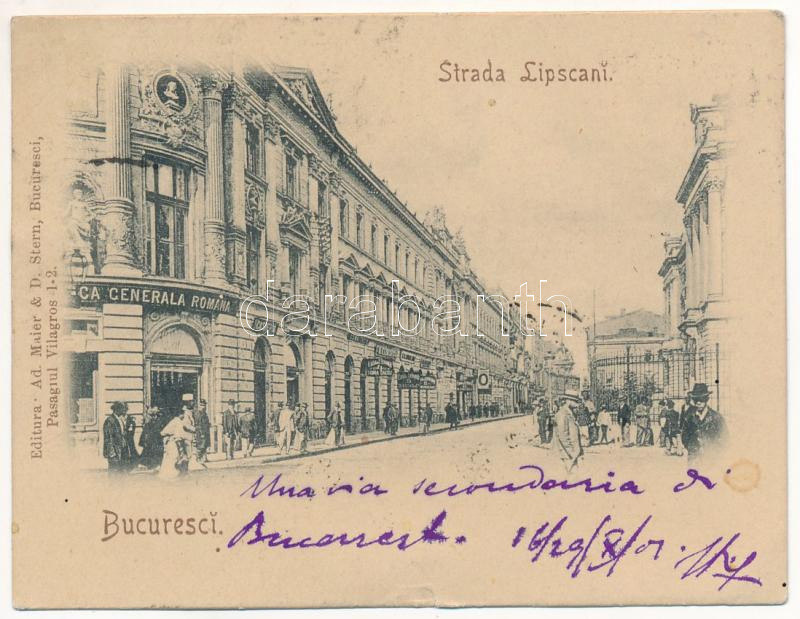 Strada Lipscanĭ.
Editura: Ad. Maier & D. Stern, Bucuresci,
Pasagiul Vilagros 1-2.
CA GENERALA ROMANA
darabanth.com
Bucurescĭ.
Una via secondaria di
Bucarest. 16/29/X/01.